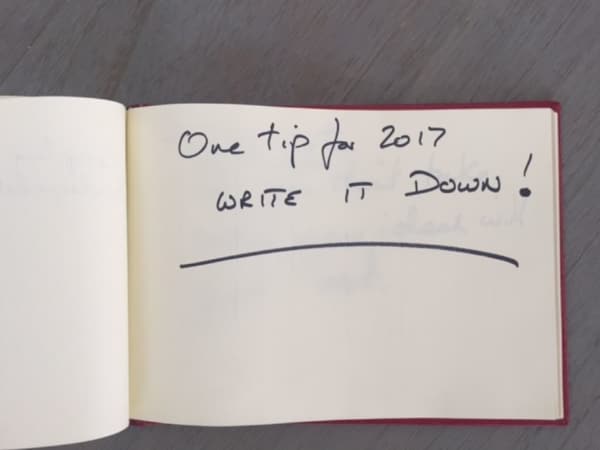 One tip for 2017
WRITE IT DOWN!